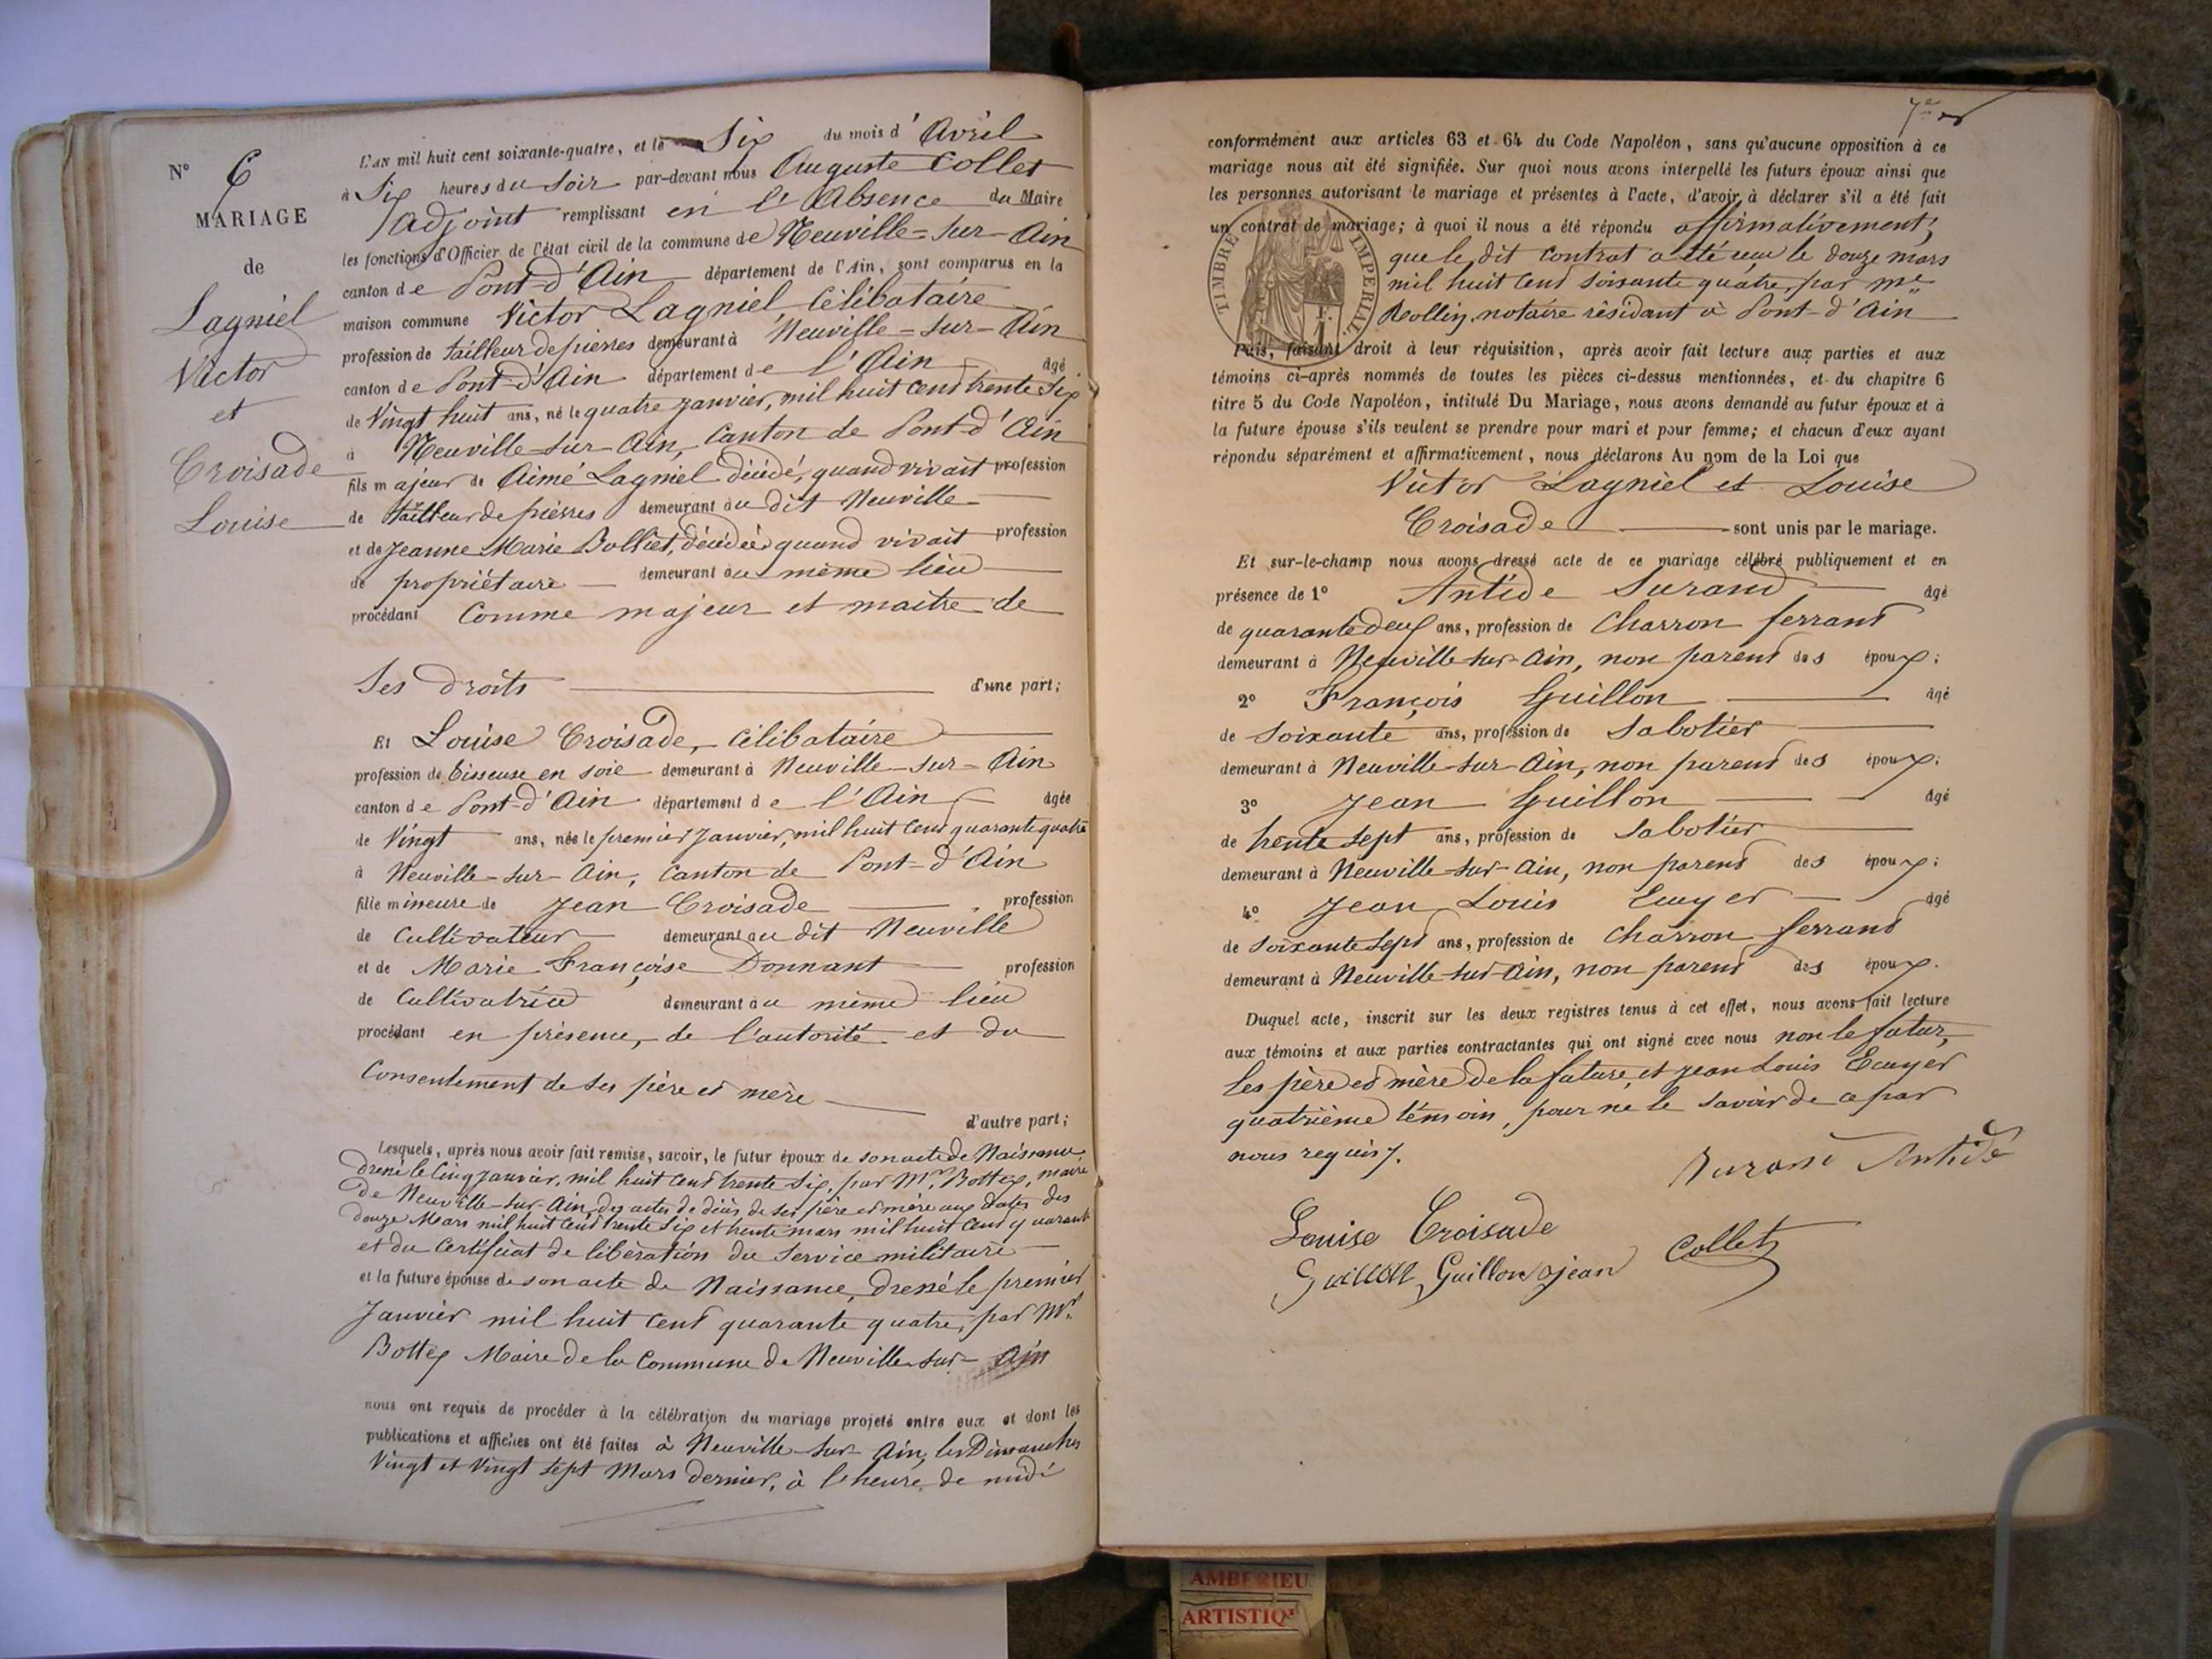 N° 6
MARIAGE
de
Lagniel
Victor
et
Croisade
Louise
L'AN mil huit cent soixante-quatre, et le Six du mois d'Avril
à Six heures du Soir par-devant nous Auguste Collet
Adjoint remplissant en l'Absence du Maire
les fonctions d'Officier de l'état civil de la commune de Neuville-sur-Ain
canton de Pont-d'Ain département de l'Ain, sont comparus en la
maison commune Victor Lagniel, Célibataire
profession de tailleur de pierres demeurant à Neuville-sur-Ain
canton de Pont-d'Ain département de l'Ain âgé
de Vingt huit ans, né le quatre Janvier, mil huit Cent trente Six
à Neuville-sur-Ain, Canton de Pont-d'Ain
fils majeur de Aimé Lagniel décédé, quand vivait profession
de tailleur de pierres demeurant au dit Neuville
et de Jeanne Marie Bolliet, décédée, quand vivait profession
de propriétaire demeurant au même lieu
procédant Comme majeur et maitre de
Ses droits d'une part;
Et Louise Croisade, Célibataire
profession de tisseuse en soie demeurant à Neuville-sur-Ain
canton de Pont-d'Ain département de l'Ain âgée
de Vingt ans, née le premier Janvier, mil huit Cent quarante quatre
à Neuville-sur-Ain, Canton de Pont-d'Ain
fille mineure de Jean Croisade profession
de Cultivateur demeurant au dit Neuville
et de Marie Françoise Donnant profession
de Cultivatrice demeurant au même lieu
procédant en présence, de l'autorité et du
Consentement de Ses père et mère
d'autre part;
Lesquels, après nous avoir fait remise, savoir, le futur époux de son acte de Naissance
dressé le Cinq Janvier, mil huit Cent trente Six, par Mr. Bottex, maire
de Neuville-sur-Ain, des actes de décès de Ses père et mère aux dates des
douze Mars mil huit Cent trente Six et trente mars mil huit Cent quarante
et du Certificat de libération du Service militaire
et la future épouse de son acte de Naissance, dressé le premier
Janvier mil huit Cent quarante quatre, par Mr.
Bottex Maire de la Commune de Neuville-sur-Ain
nous ont requis de procéder à la célébration du mariage projeté entre eux et dont les
publications et affiches ont été faites à Neuville-sur-Ain, les Dimanches
Vingt et Vingt Sept Mars dernier, à l'heure de midi
7e
conformément aux articles 63 et 64 du Code Napoléon, sans qu'aucune opposition à ce
mariage nous ait été signifiée. Sur quoi nous avons interpellé les futurs époux ainsi que
les personnes autorisant le mariage et présentes à l'acte, d'avoir à déclarer s'il a été fait
un contrat de mariage; à quoi il nous a été répondu affirmativement,
que le dit Contrat a été reçu le douze mars
mil huit Cent Soixante quatre, par Me
Rollin, notaire résidant à Pont-d'Ain
TIMBRE IMPERIAL
Puis, faisant droit à leur réquisition, après avoir fait lecture aux parties et aux
témoins ci-après nommés de toutes les pièces ci-dessus mentionnées, et du chapitre 6
titre 5 du Code Napoléon, intitulé Du Mariage, nous avons demandé au futur époux et à
la future épouse s'ils veulent se prendre pour mari et pour femme; et chacun d'eux ayant
répondu séparément et affirmativement, nous déclarons Au nom de la Loi que
Victor Lagniel et Louise
Croisade sont unis par le mariage.
Et sur-le-champ nous avons dressé acte de ce mariage célébré publiquement et en
présence de 1° Antide Durand âgé
de quarante deux ans, profession de Charron ferrant
demeurant à Neuville-sur-Ain, non parent des époux;
2° François Guillon âgé
de Soixante ans, profession de Sabotier
demeurant à Neuville-sur-Ain, non parent des époux;
3° Jean Guillon âgé
de trente Sept ans, profession de Sabotier
demeurant à Neuville-sur-Ain, non parent des époux;
4° Jean Louis Ecuyer âgé
de Soixante Sept ans, profession de Charron ferrant
demeurant à Neuville-sur-Ain, non parent des époux.
Duquel acte, inscrit sur les deux registres tenus à cet effet, nous avons fait lecture
aux témoins et aux parties contractantes qui ont signé avec nous non le futur,
les père et mère de la future, et Jean Louis Ecuyer
quatrième témoin, pour ne le Savoir de ce par
nous requis.
Durand Antide
Louise Croisade
Guillon Guillon jean Collet
AMBERIEU
ARTISTIQ